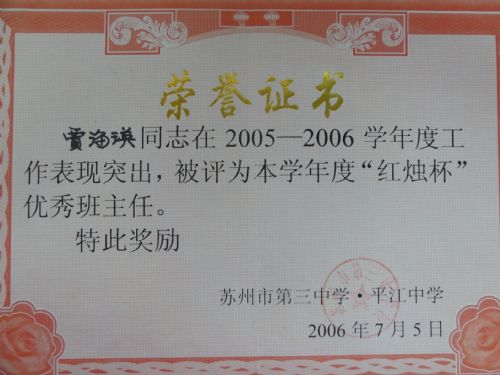 荣誉证书
贾海瑛同志在 2005—2006 学年度工
作表现突出，被评为本学年度“红烛杯”
优秀班主任。
特此奖励
苏州市第三中学·平江中学
2006 年 7 月 5 日